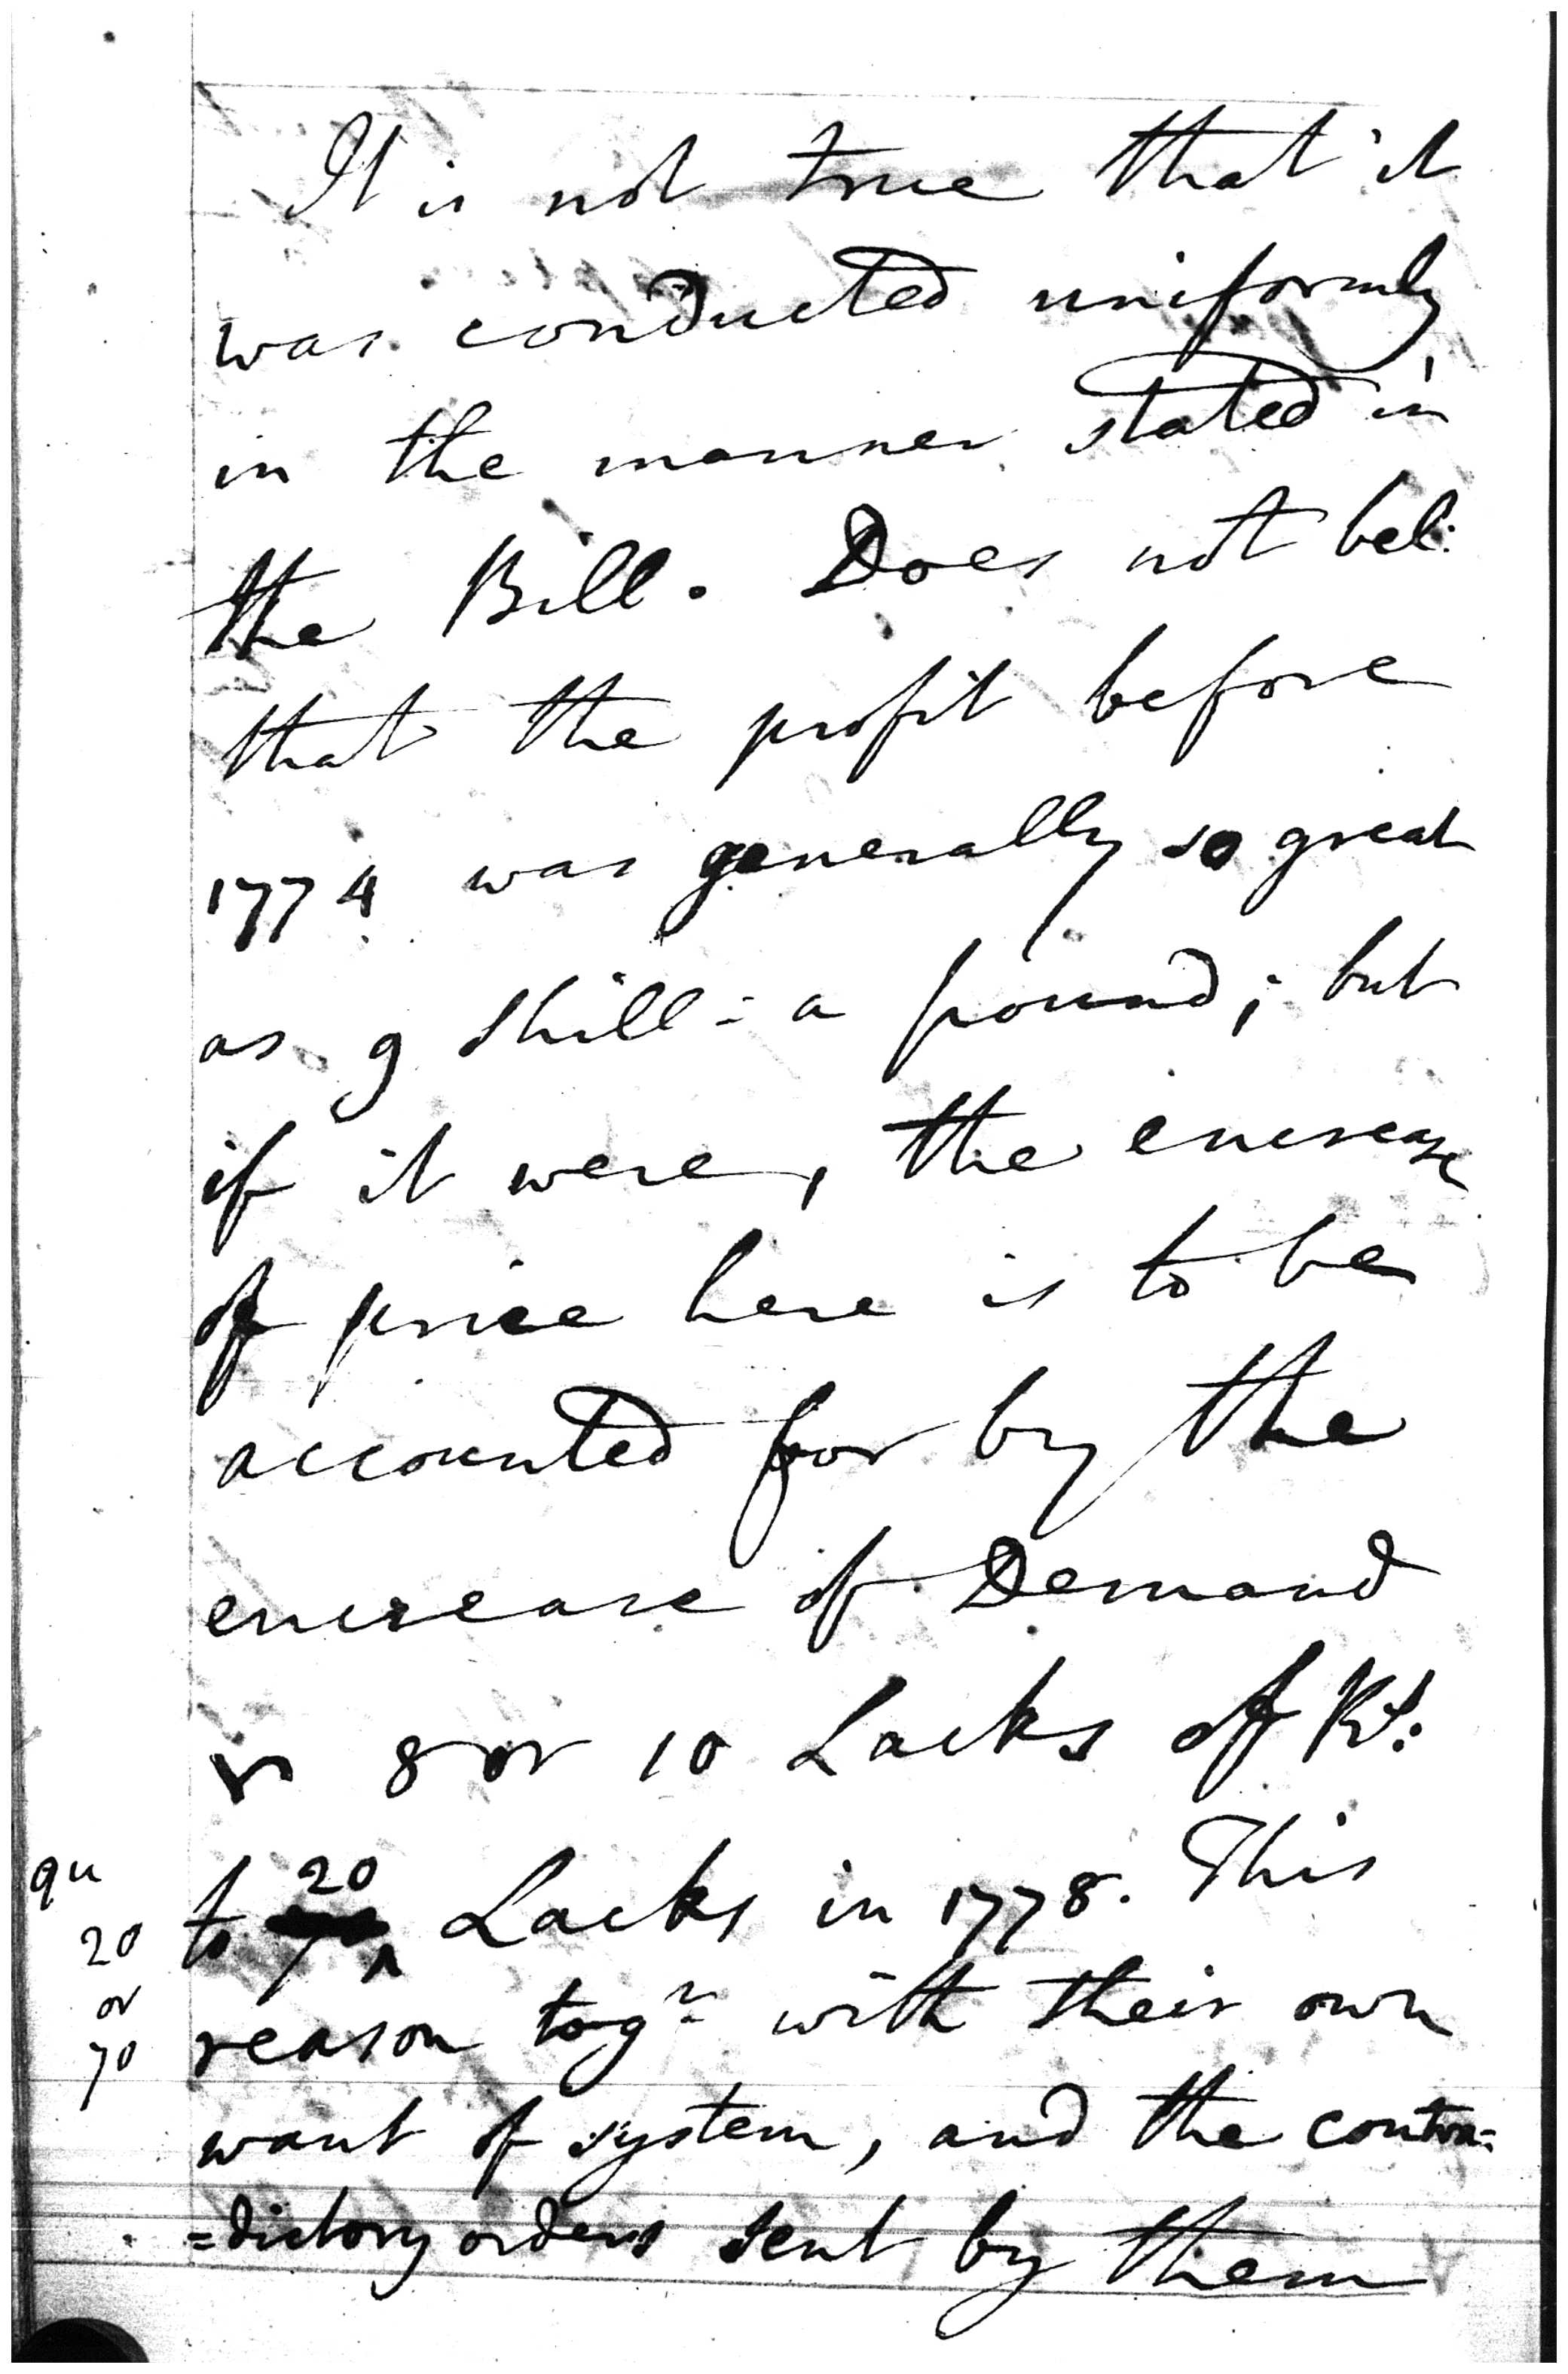 It is not true that it
was conducted uniformly
in the manner stated in
the Bill. Does not bel:
that the profit before
1774 was generally so great
as 9 Shill: a pound; but
if it were, the encrease
of price here is to be
accounted for by the
encrease of Demand
8 or 10 Lacks of Rs.
qu
20
or
70
to 20 Lacks in 1778. This
reason togr with their own
want of system, and the contra=
=dictory orders sent by them